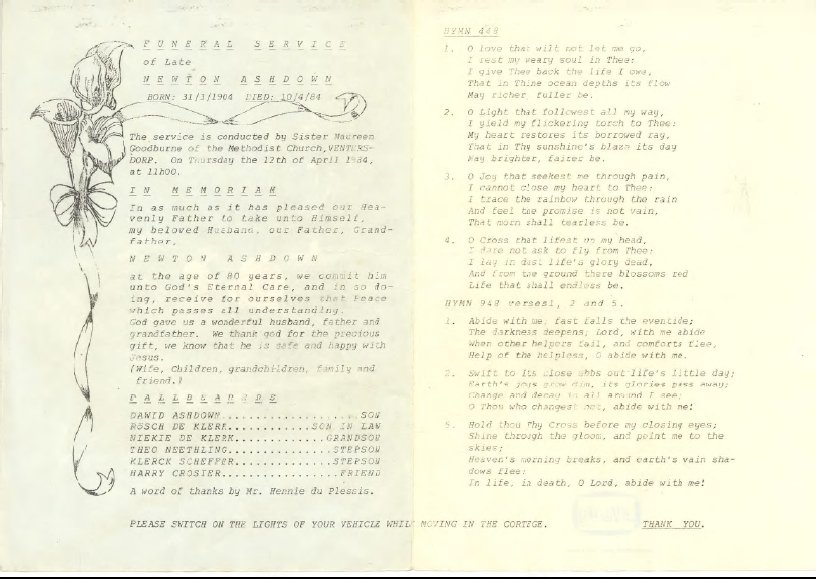 F U N E R A L   S E R V I C E
of Late
N E W T O N   A S H D O W N
BORN: 31/3/1904 DIED: 10/4/84
The service is conducted by Sister Maureen
Goodburne of the Methodist Church,VENTERS-
DORP. On Thursday the 12th of April 1984,
at 11h00.
I N   M E M O R I A M
In as much as it has pleased our Hea-
venly Father to take unto Himself,
my beloved Husband, our Father, Grand-
father,
N E W T O N   A S H D O W N
at the age of 80 years, we commit him
unto God's Eternal Care, and in so do-
ing, receive for ourselves that Peace
which passes all understanding.
God gave us a wonderful husband, father and
grandfather. We thank god for the precious
gift, we know that he is safe and happy with
Jesus.
(Wife, Children, grandchildren, family and
friend.)
P A L L B E A R E
DAWID ASHDOWN....................SON
ROSCH DE KLERK............SON IN LAW
NIEKIE DE KLERK.............GRANDSON
THEO NEETHLING...............STEPSON
KLERCK SCHEFFER..............STEPSON
HARRY CROSIER.................FRIEND
A word of thanks by Mr. Hennie du Plessis.
HYMN 448
1. O love that wilt not let me go,
I rest my weary soul in Thee:
I give Thee back the life I owe,
That in Thine ocean depths its flow
May richer fuller be.
2. O Light that followest all my way,
I yield my flickering torch to Thee:
My heart restores its borrowed ray,
That in Thy sunshine's blaze its day
May brighter, fairer be.
3. O Joy that seekest me through pain,
I cannot close my heart to Thee:
I trace the rainbow through the rain
And feel the promise is not vain,
That morn shall tearless be.
4. O Cross that lifest up my head,
I dare not ask to fly from Thee:
I lay in dust life's glory dead,
And from the ground there blossoms red
Life that shall endless be.
HYMN 948 verses1, 2 and 5.
1. Abide with me; fast falls the eventide;
The darkness deepens, Lord, with me abide
When other helpers fail, and comforts flee,
Help of the helpless, O abide with me.
2. Swift to its close ebbs out life's little day;
Earth's joys grow dim, its glories pass away;
Change and decay in all around I see;
O Thou who changest not, abide with me!
5. Hold thou Thy Cross before my closing eyes;
Shine through the gloom, and point me to the
skies;
Heaven's morning breaks, and earth's vain sha-
dows flee:
In life, in death, O Lord, abide with me!
PLEASE SWITCH ON THE LIGHTS OF YOUR VEHICLE WHILE MOVING IN THE CORTEGE. THANK YOU.